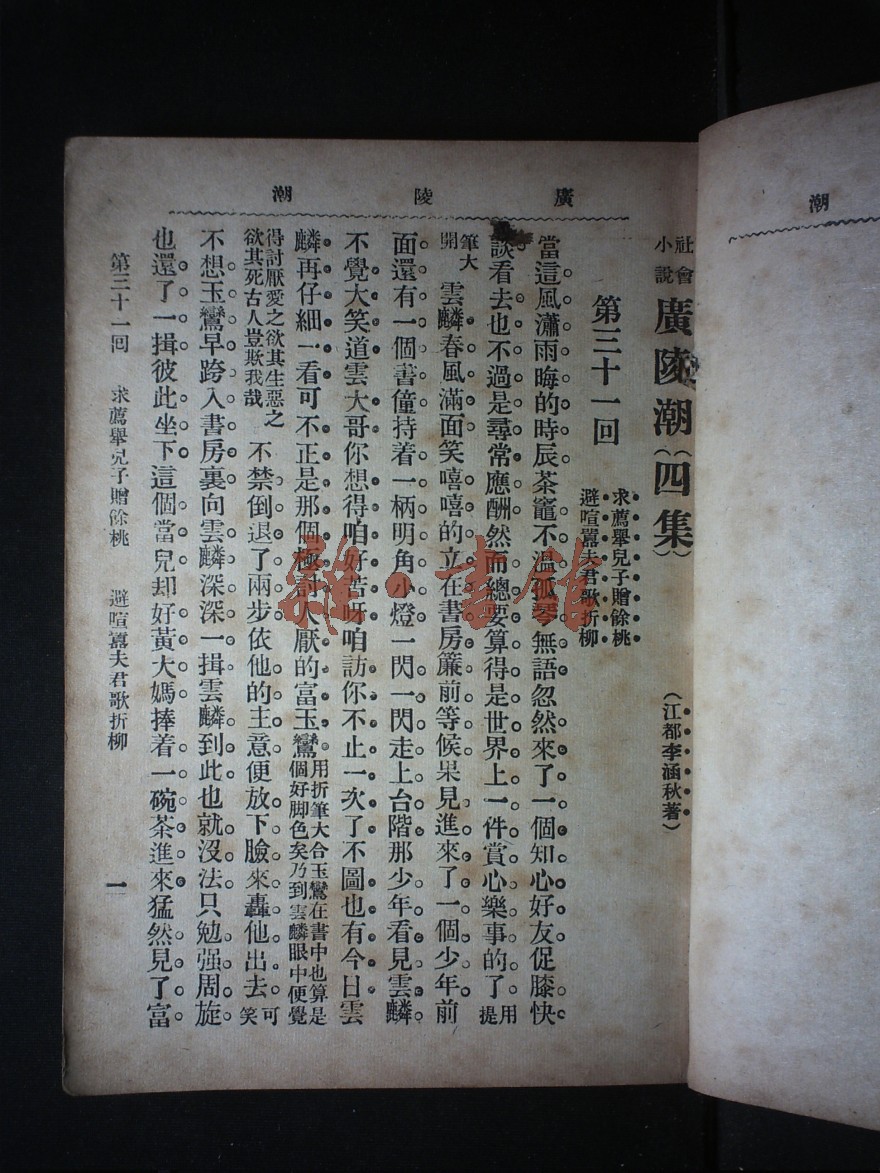 潮
廣陵潮
社會小說 廣陵潮（四集）
（江都李涵秋著）
第三十一回
求薦舉兒子贈餘桃
避喧囂夫君歌折柳
當這風瀟雨晦的時辰茶竈不溫孤琴無語忽然來了一個知心好友促膝快
談看去也不過是尋常應酬然而總要算得是世界上一件賞心樂事的了用提
筆大開雲麟春風滿面笑嘻嘻的立在書房簾前等候果見進來了一個少年前
面還有一個書僮持着一柄明角小燈一閃一閃走上台階那少年看見雲麟
不覺大笑道雲大哥你想得咱好苦呀咱訪你不止一次了不圖也有今日雲
麟再仔細一看可不正是那個極討人厭的富玉鸞用折筆大合玉鸞在書中也算是個好脚色矣乃到雲麟眼中便覺
得討厭愛之欲其生惡之欲其死古人豈欺我哉不禁倒退了兩步依他的主意便放下臉來轟他出去可笑
不想玉鸞早跨入書房裏向雲麟深深一揖雲麟到此也就沒法只勉强周旋
也還了一揖彼此坐下這個當兒却好黃大媽捧着一碗茶進來猛然見了富
第三十一回 求薦舉兒子贈餘桃 避喧囂夫君歌折柳
一
雜·書館